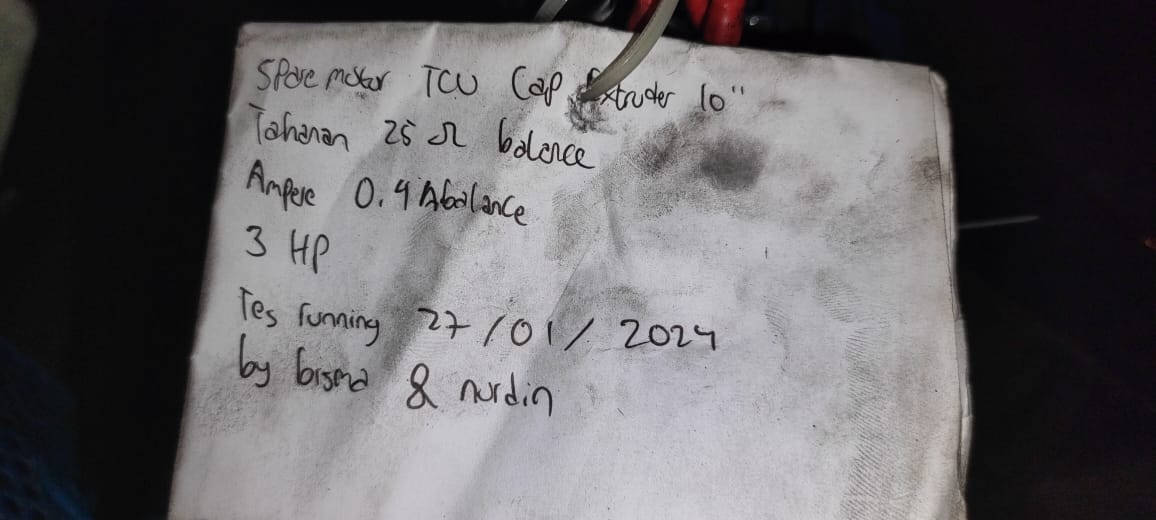 Spare motor TCU Cap Extruder 10"
Tahanan 25 Ω balance
Ampere 0.4 A balance
3 HP
Tes running 27/01/2024
by bisma & nurdin